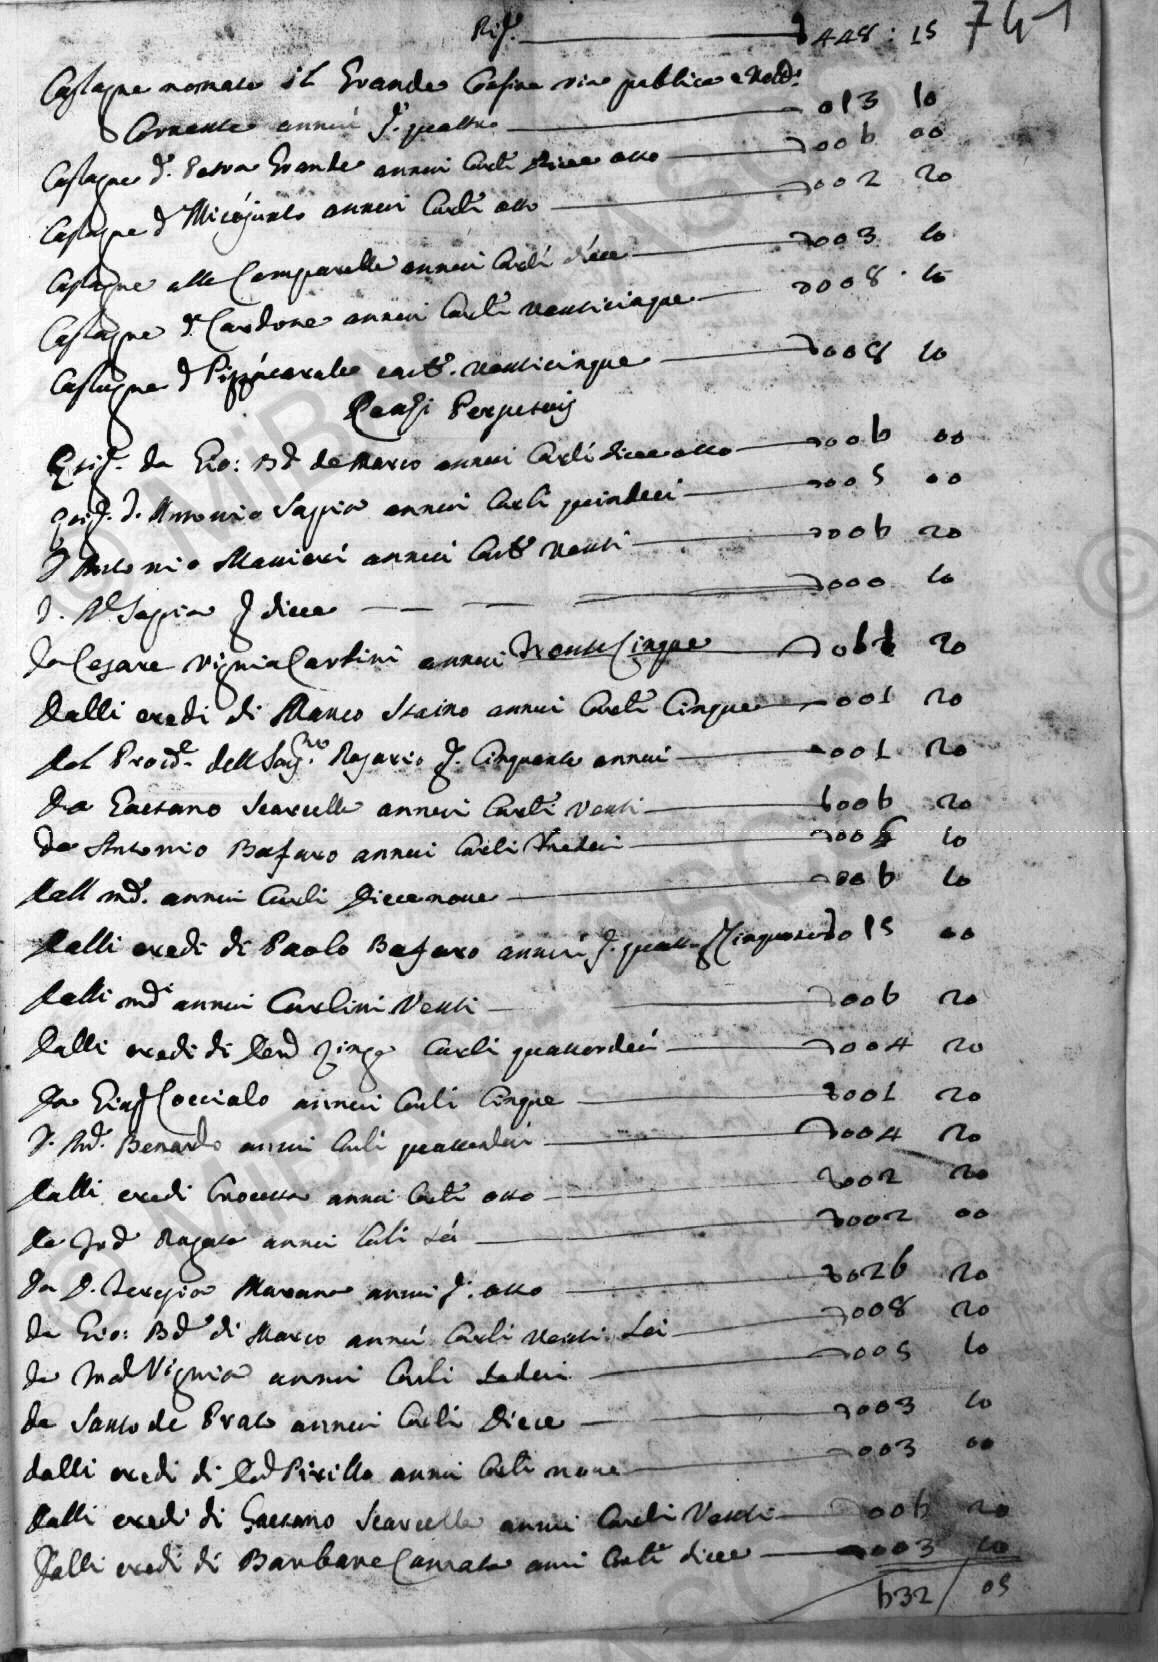 Rip.ta 448 : 15 741
Castagne nomate il Grande Confine via publica e
Corrente annui d. quattro 013 10
Castagne d. Petra Grande annui Carli dieceotto 006 00
Castagne d annui Carli otto 002 20
Castagne alla Comparella annui Carli diece 003 10
Castagne d. Cardone annui Carli venticinque 008 . 10
Castagne d carli venticinque 008 10
Censi Perpetuij
da Gio: Bd de Marco annui Carli dieceotto 006 00
d. Antonio Sapia annui Carli quindeci 005 00
d Antonio Manieri annui Carli venti 006 20
d. Sapia diece 000 10
da Cesare Vignia Carlini annui Trenta Cinque 20
dalli eredi di Marco Staino annui Carli Cinque 001 20
dal Rosario Cinquanta annui 001 20
da Gaetano Scarcella annui Carli Venti 006 20
da Antonio Bafaro annui Carli Tredeci 10
dall md. annui Carli Diecenove 006 10
dalli eredi di Paolo Bafaro annui d. quatto 015 00
dalli md annui Carlini Venti 006 20
dalli eredi di Carli quattordeci 004 20
da Coccialo annui Carli Cinque 001 20
d. And. Benardo annui Carli quattordeci 004 20
dalli eredi Crocetta annui Carli otto 002 20
da Ragosa annui Carli sei 002 00
da D. Marano annui d. otto 026 20
da Gio: Bd di Marco annui Carli Venti Sei 008 20
da Vignia annui Carli sedeci 005 10
da Santo de Prato annui Carli Diece 003 10
dalli eredi di Pirillo annui Carli nove 003 00
dalli eredi di Gaetano Scarcella annui Carli Venti 006 20
dalli eredi di Barbara annui Carli diece 003 10
632 / 05